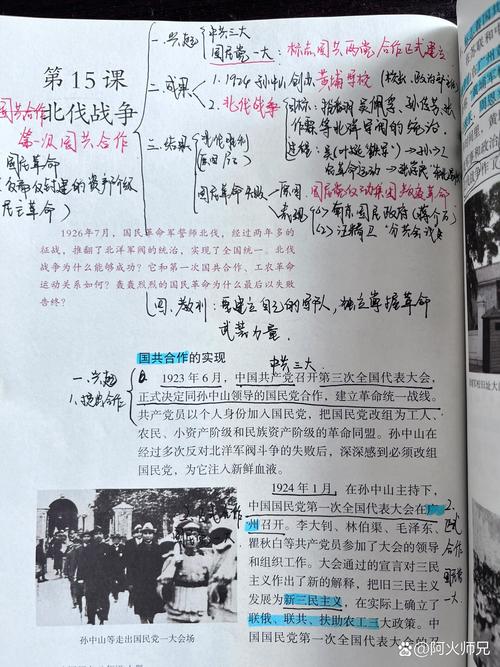 第15课
北伐战争
国共合作
第一次国共合作
国民革命
民主革命)
一、兴起
中共三大
国民党一大：标志国共两党合作正式建立
二、成果
1.1924孙中山创办黄埔军校
2.北伐战争
目标：推翻吴佩孚、孙传芳、张
作霖等北洋军阀的统治。
三、结果
国民革命失败
原因：国民党反动集团叛变革命
表现
四、教训：要建立自己的军队，独立掌握革命
武装力量.
1926年7月，国民革命军誓师北伐，经过两年多的
征战，推翻了北洋军阀的统治，实现了全国统一。北伐
战争为什么能够成功？它和第一次国共合作、工农革命
运动关系如何？轰轰烈烈的国民革命为什么最后以失败
告终？
国共合作的实现
中共三大
一、兴起
1923年6月，中国共产党召开第三次全国代表大会，
正式决定同孙中山领导的国民党合作，建立革命统一战线。
共产党员以个人身份加入国民党，把国民党改组为工人、
农民、小资产阶级和民族资产阶级的革命同盟。孙中山在
经过多次反对北洋军阀斗争的失败后，深深感到必须改组
国民党，为它注入新鲜血液。
1924年1月，在孙中山主持下，
中国国民党第一次全国代表大会在广
州召开。李大钊、林伯渠、毛泽东、
瞿秋白等共产党员参加了大会的领导
和组织工作。大会通过的宣言对三民
主义作出了新的解释，把旧三民主义
发展为新三民主义，在实际上确立了
联俄、联共、扶助农工三大政策。中
国国民党第一次全国代表大会的召
孙中山等走出国民党一大会场
@阿火师兄